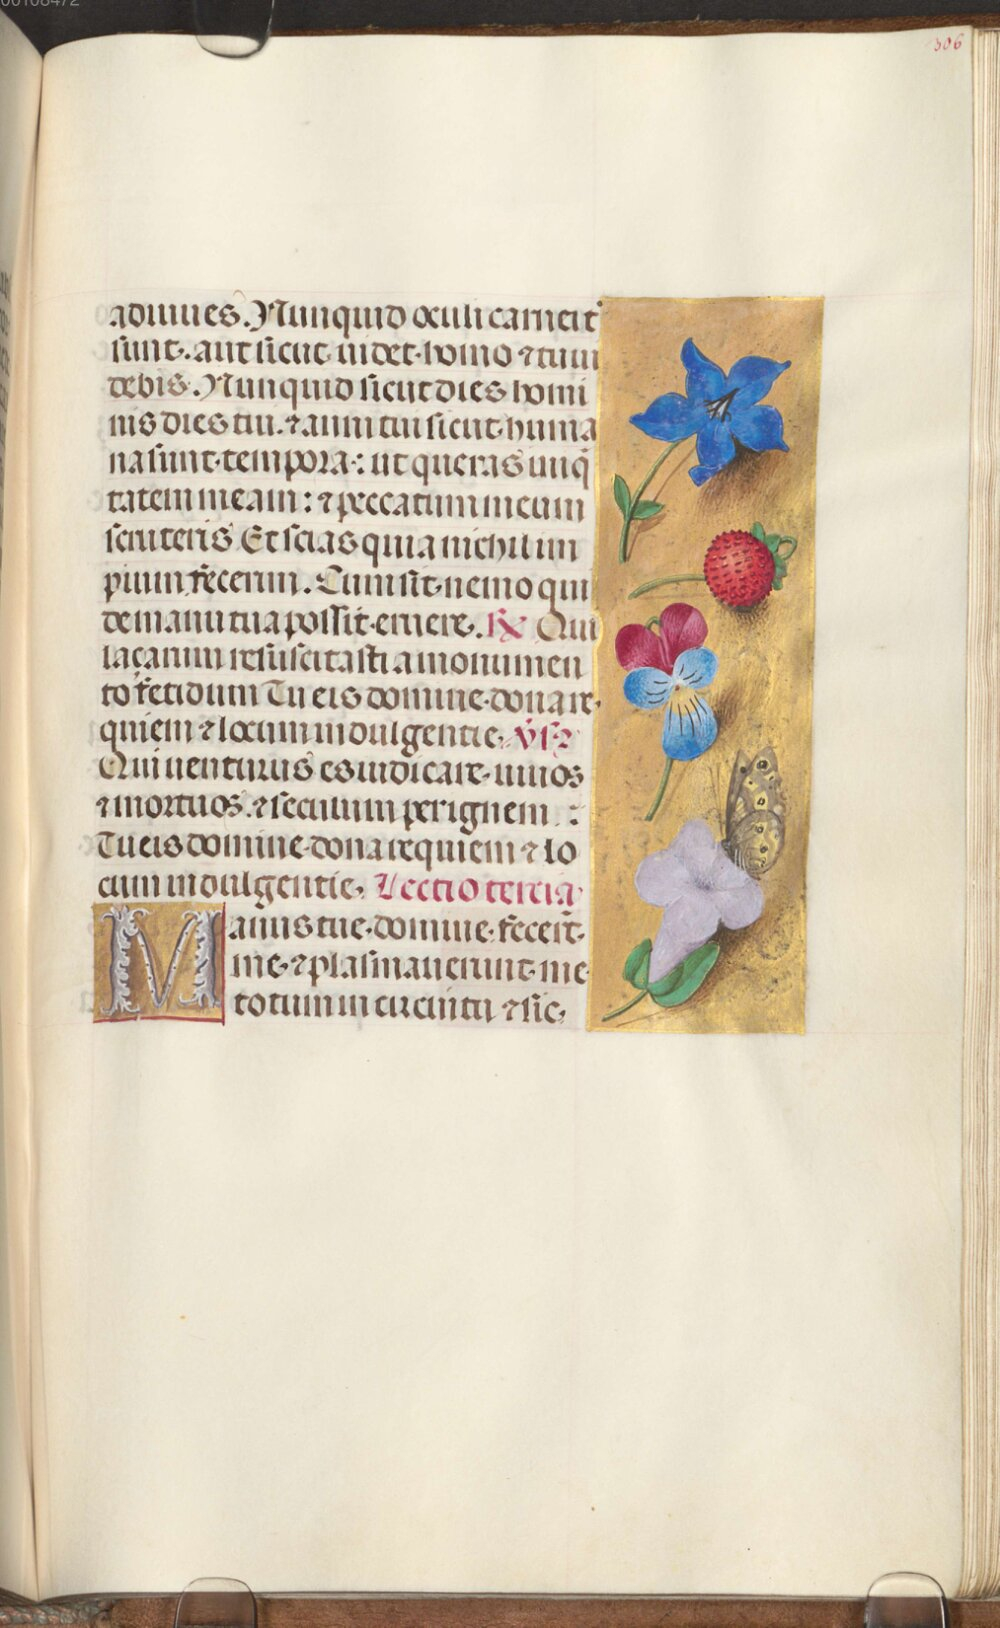 00108472
306
adiuues. Nunquid oculi carnei t͛
sunt. aut sicut videt homo ⁊ tu vi
debis. Nunquid sicut dies homi
nis dies tui. ⁊ anni tui sicut huma
na sunt tempora: ut queras iniq̄
tatem meam: ⁊ peccatum meum
scruteris Et scias quia nichil im
pium fecerim. Cum sit nemo qui
de manu tua possit eruere. ℟ Qui
lazarum resuscitasti a monumen
to fetidum Tu eis domine dona re
quiem ⁊ locum indulgentie. v̓s
Qui venturus es iudicare viuos
⁊ mortuos. ⁊ seculum per ignem :
Tu eis domine dona requiem ⁊ lo
cum indulgentie, Lectio tercia
Manus tue domine fecer̄t
me ⁊ plasmauerunt me
totum in circuitu ⁊ sic